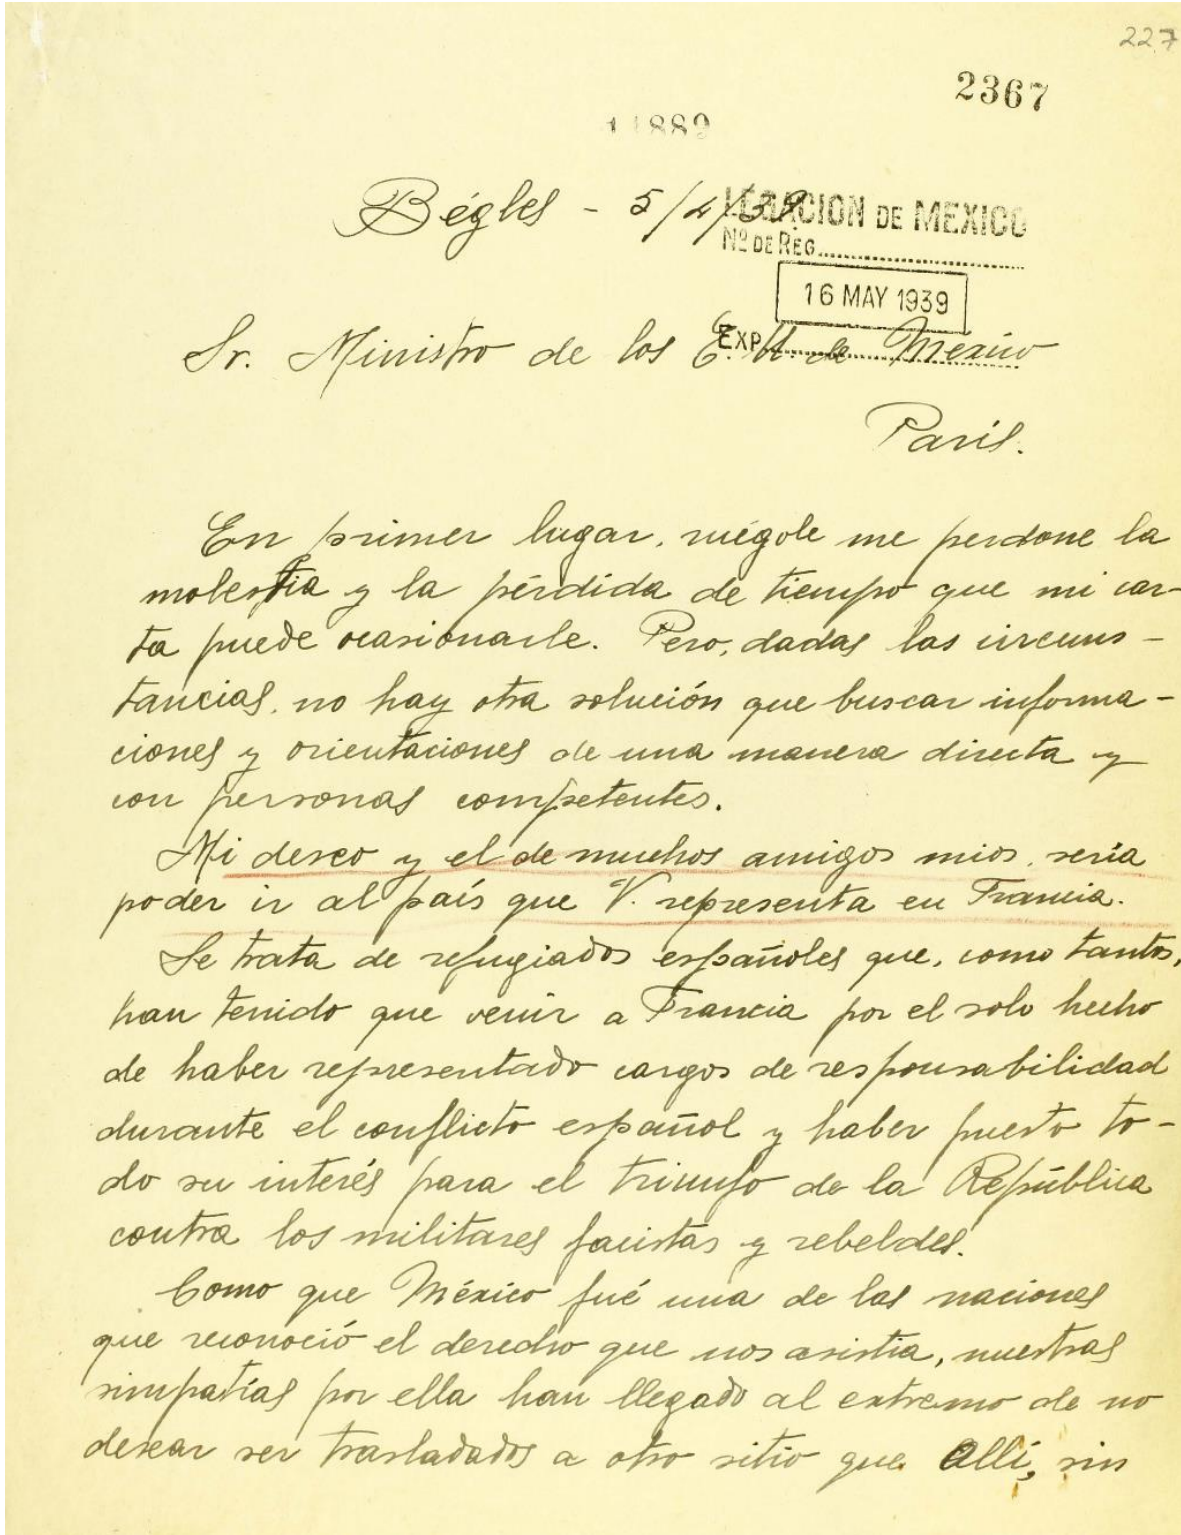 227
2367
11889
Bégles - 5/4/39
LEGACION DE MEXICO
Nº DE REG.
16 MAY 1939
EXP.
Sr. Ministro de los E. U. de Mexico
París.
En primer lugar, ruégole me perdone la
molestia y la pérdida de tiempo que mi car-
ta puede ocasionarle. Pero, dadas las circuns-
tancias, no hay otra solución que buscar informa-
ciones y orientaciones de una manera directa y
con personas competentes.
Mi deseo y el de muchos amigos mios, seria
poder ir al país que V. representa en Francia.
Se trata de refugiados españoles que, como tantos,
han tenido que venir a Francia por el solo hecho
de haber representado cargos de responsabilidad
durante el conflicto español y haber puesto to-
do su interés para el triunfo de la República
contra los militares facistas y rebeldes.
Como que México fué una de las naciones
que reconoció el derecho que nos asistia, nuestras
simpatías por ella han llegado al extremo de no
desear ser trasladados a otro sitio que allí, sin